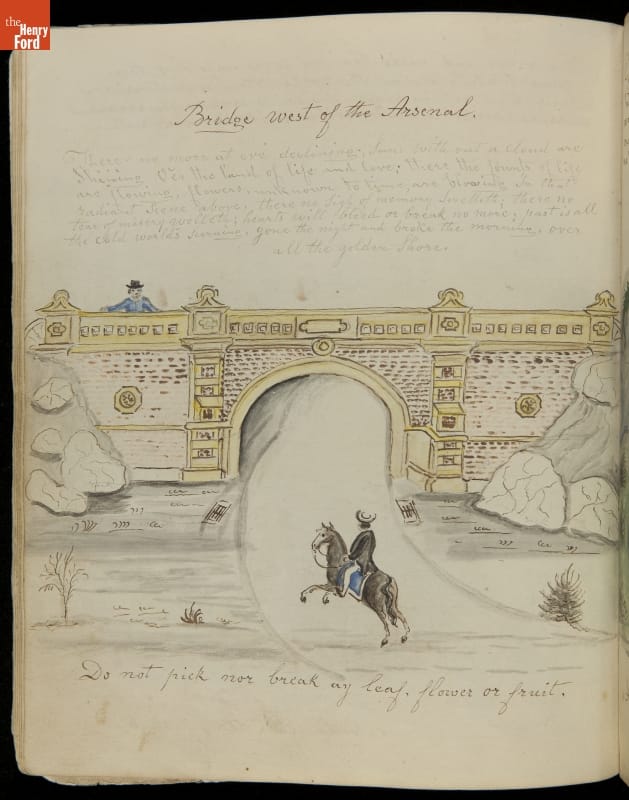 the
Henry
Ford
Bridge west of the Arsenal.
There no more at eve declining, Suns with out a cloud are
Shining O'er the land of life and love; there the founts of life
are flowing, flowers, unknown to time, are blowing In that
radiant Scene above, there no Sigh of memory Swelleth; there no
tear of misery welleth; hearts will bleed or break no more; past is all
the cold world's scorning, gone the night and broke the morning, over
all the golden Shore.
Do not pick nor break ay leaf, flower or fruit.